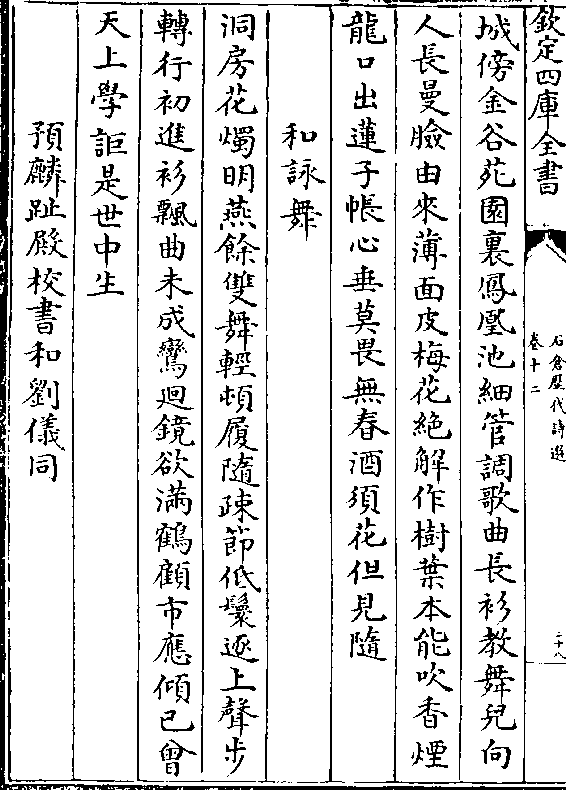 欽定四庫全書
石倉歷代詩選
卷十二
二十八
城傍金谷苑園裏鳳凰池細管調歌曲長衫教舞兒向
人長曼臉由來薄面皮梅花絶解作樹葉本能吹香煙
龍口出蓮子帳心垂莫畏無春酒須花但見隨
和詠舞
洞房花燭明燕餘雙舞輕頓履隨疎節低鬟逐上聲步
轉行初進衫飄曲未成鸞迴鏡欲滿鶴顧市應傾已曾
天上學詎是世中生
預麟趾殿校書和劉儀同